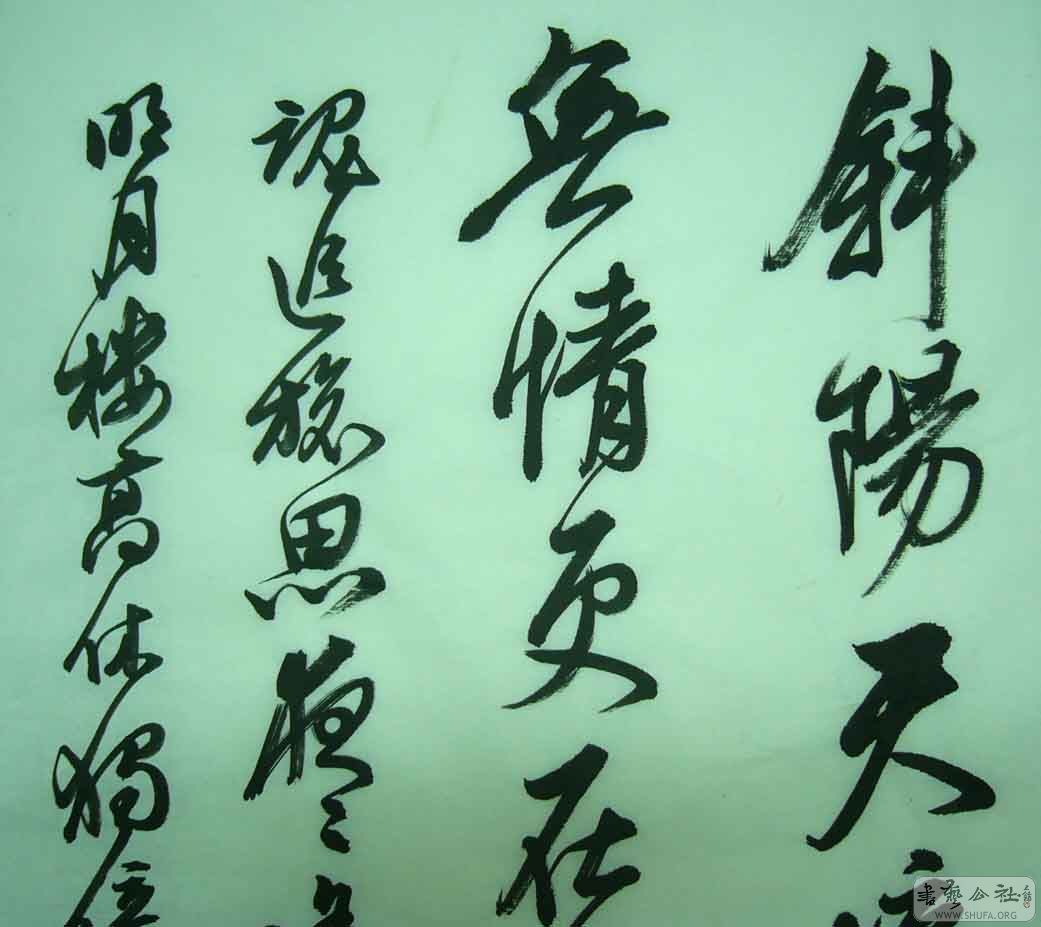 斜陽天
無情更在
魂追旅思夜〻
明月樓高休獨倚
書藝公社
WWW.SHUFA.ORG